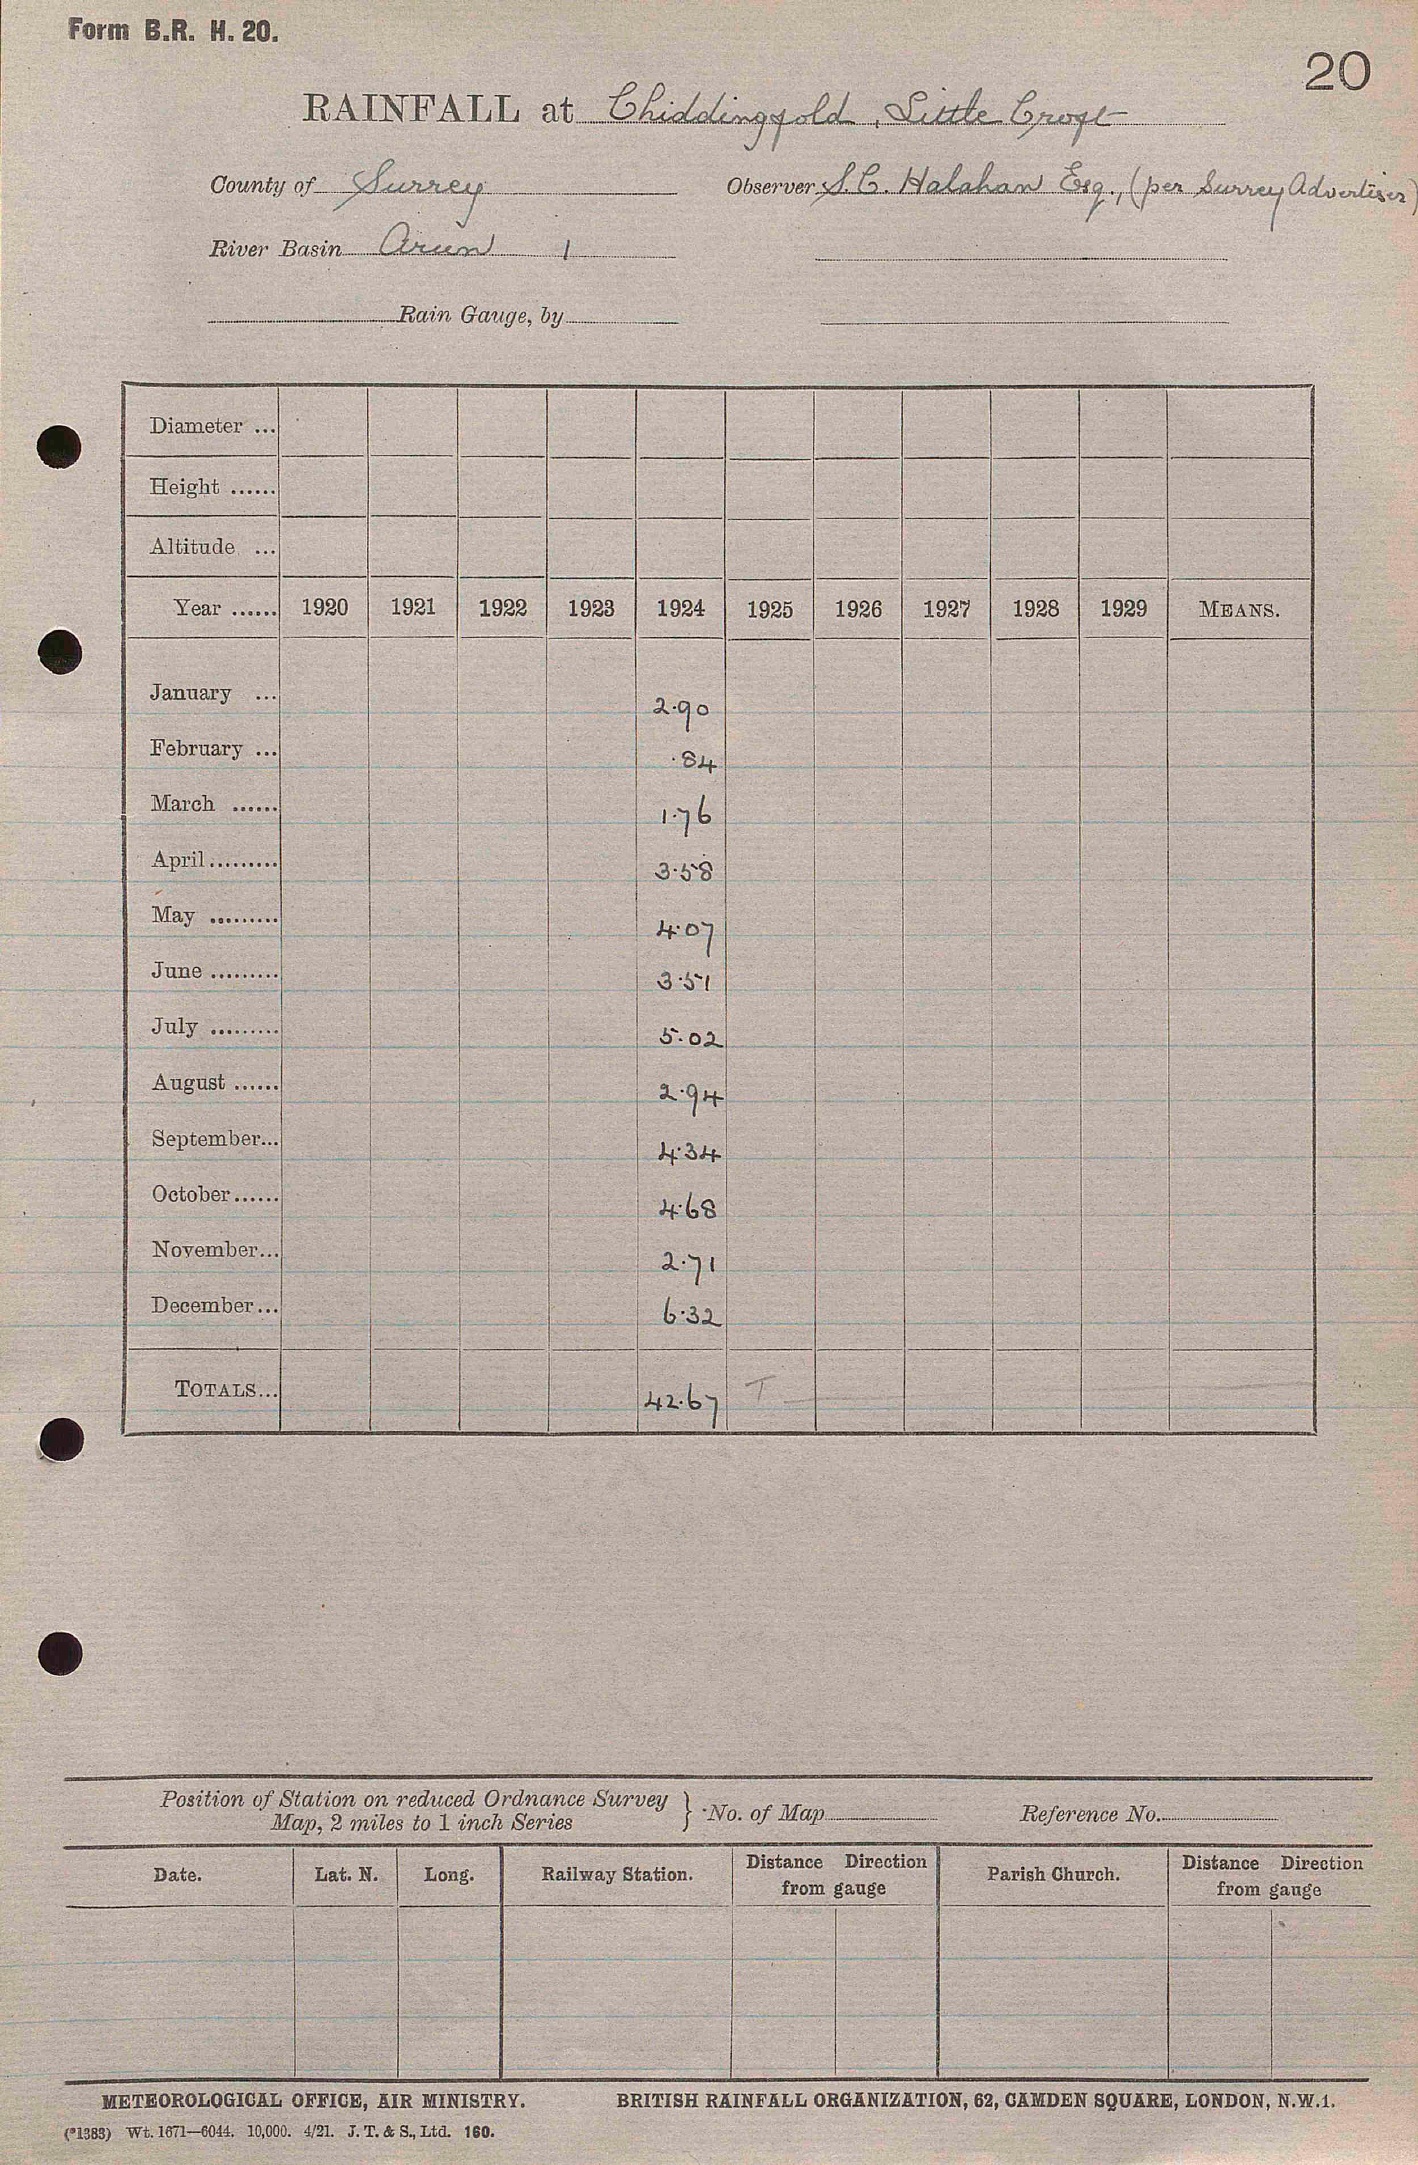 Form B.R. H. 20.
20
RAINFALL at Chiddingfold, Little Croft
County of Surrey Observer S.C. Halahan Esq., (per Surrey Advertiser)
River Basin Arun 1
Rain Gauge, by
Diameter ...
Height ......
Altitude ...
Year ...... 1920 1921 1922 1923 1924 1925 1926 1927 1928 1929 MEANS.
January ... 2.90
February ... .84
March ...... 1.76
April ......... 3.58
May ......... 4.07
June ......... 3.51
July ......... 5.02
August ...... 2.94
September... 4.34
October ...... 4.68
November... 2.71
December... 6.32
TOTALS... 42.67 T
Position of Station on reduced Ordnance Survey
Map, 2 miles to 1 inch Series } No. of Map Reference No.
Date. Lat. N. Long. Railway Station. Distance Direction from gauge Parish Church. Distance Direction from gauge
METEOROLOGICAL OFFICE, AIR MINISTRY. BRITISH RAINFALL ORGANIZATION, 62, CAMDEN SQUARE, LONDON, N.W.1.
(*1383) Wt. 1671—6044. 10,000. 4/21. J. T. & S., Ltd. 160.